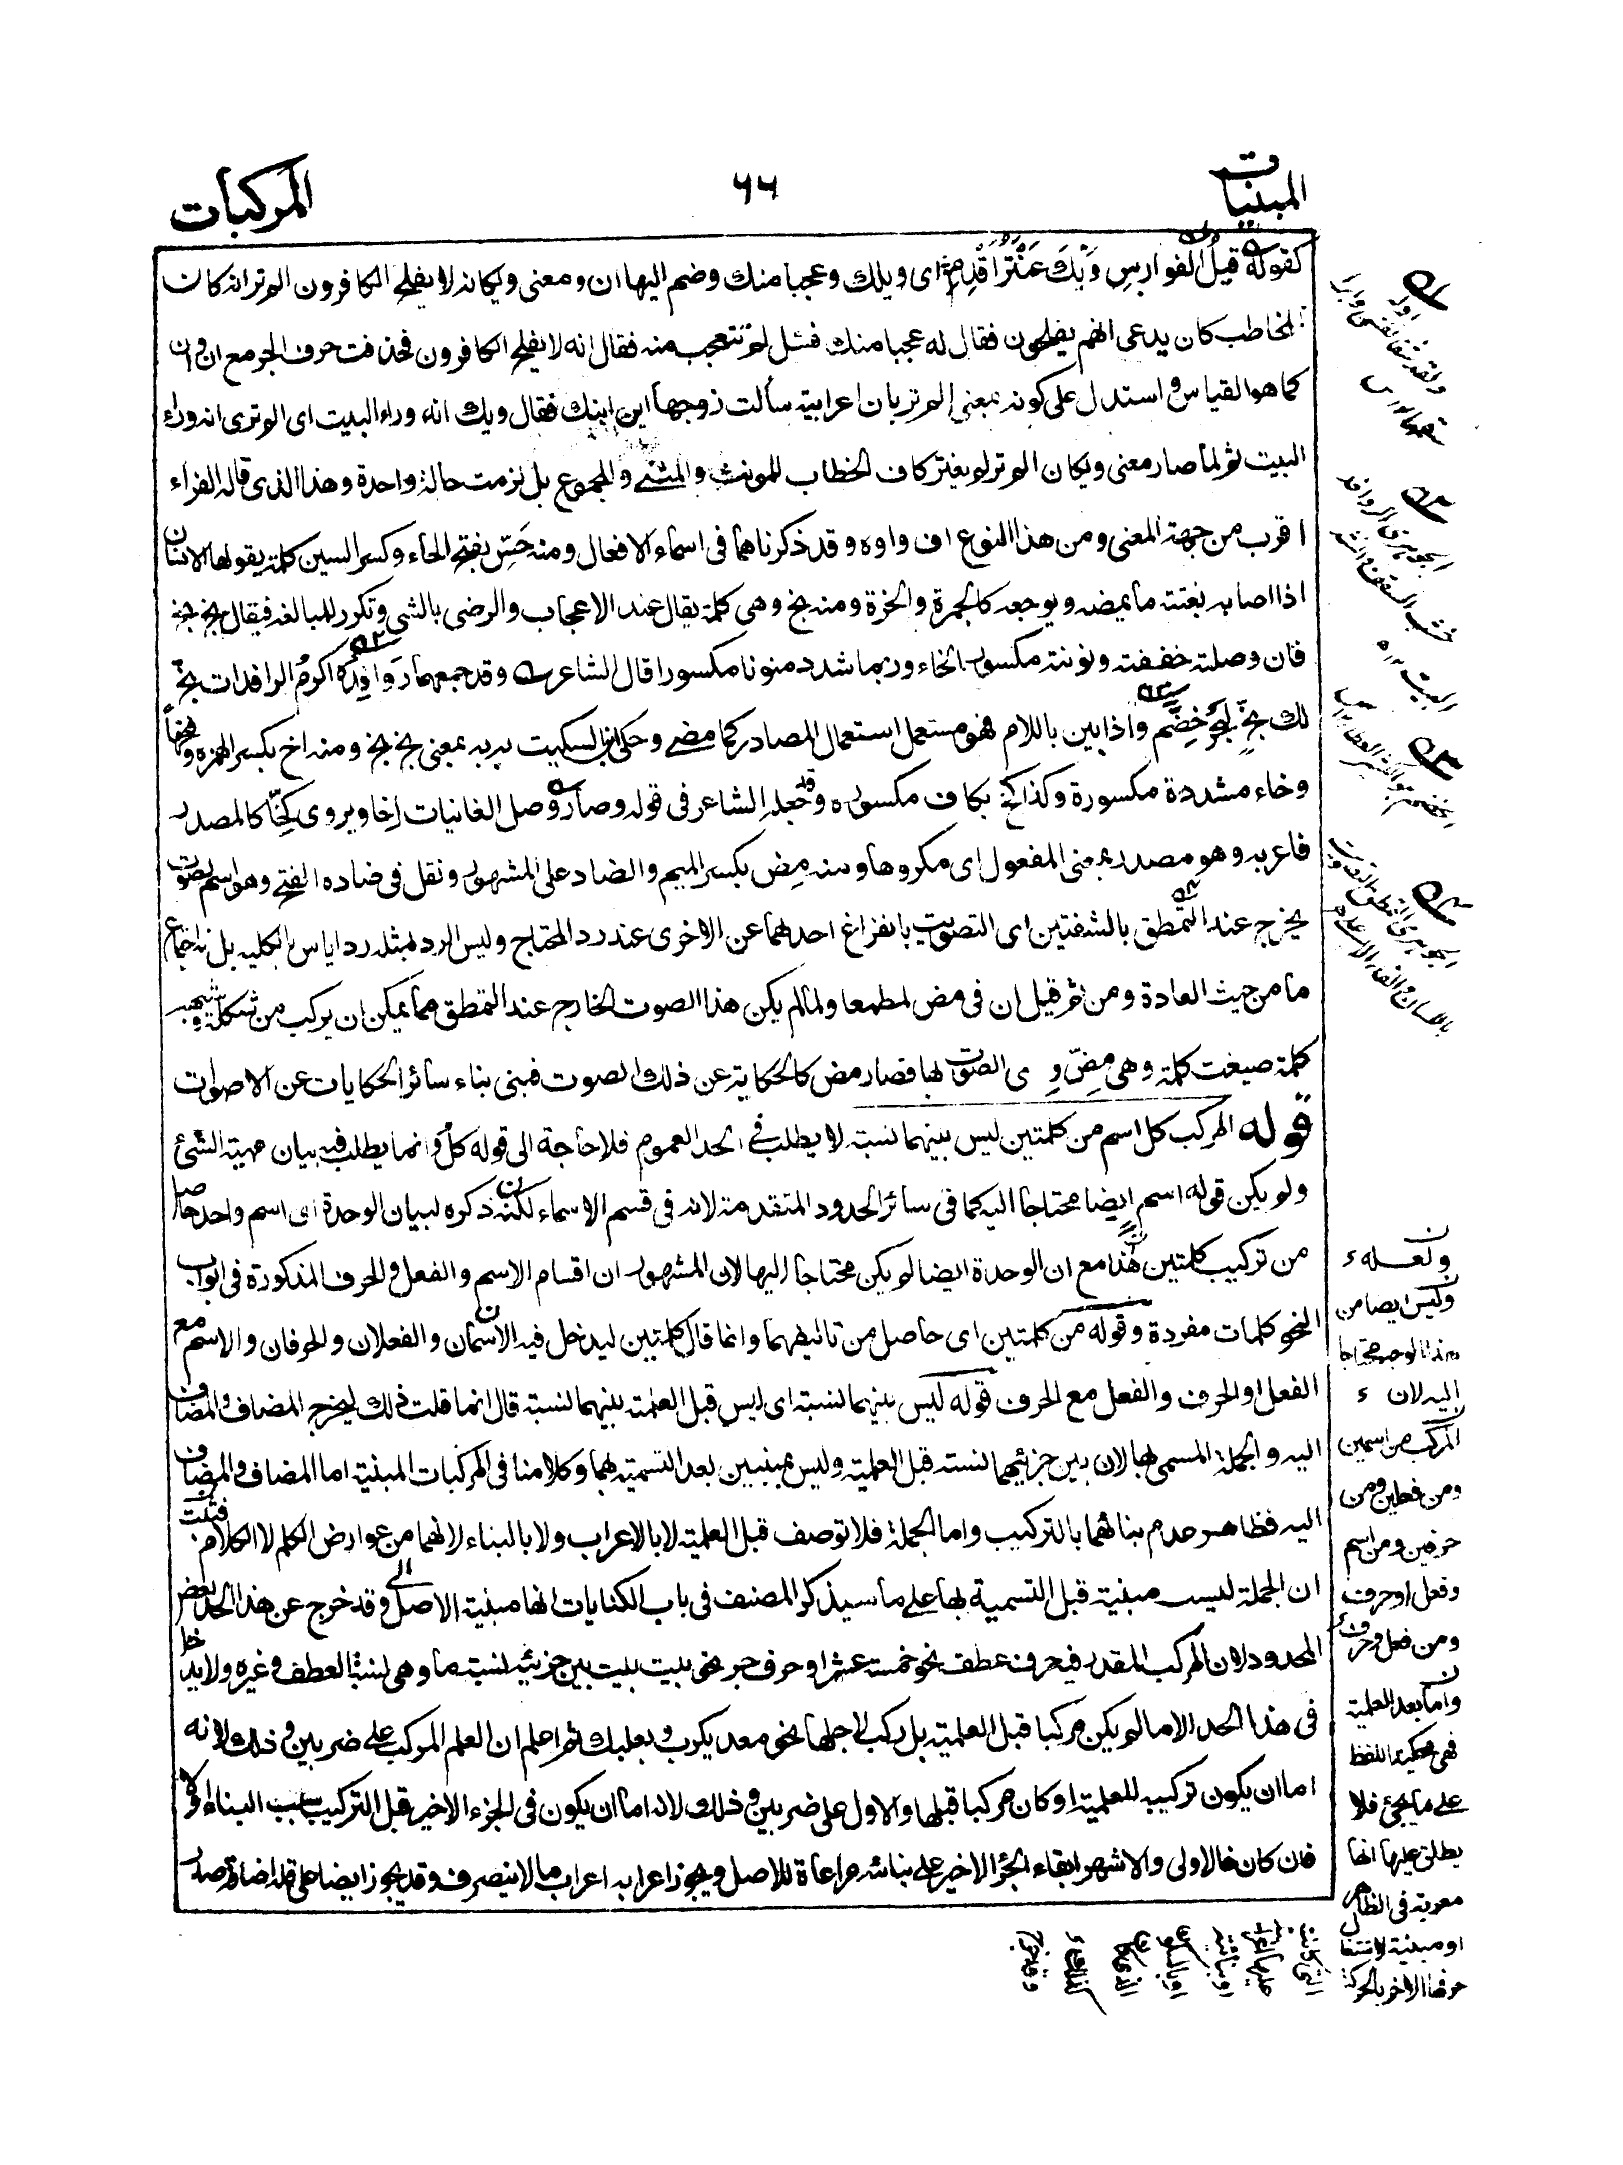 المبنيات
٦٦
المركبات
كقوله قيل الفوارس ويك عنتر اقدم اى ويلك وعجبا منك وضم اليها ان ومعنى ويكانه لا يفلح الكافرون الم تر انه كان
المخاطب كان يدعى انهم يفلحون فقال له عجبا منك فسئل لم تتعجب منه فقال انه لا يفلح الكافرون فحذفت حرف الجر مع ان و ان
كما هو القياس و استدل على كونه بمعنى الم تر بان اعرابية سألت زوجها اين ابنك فقال ويك انه وراء البيت اى الم ترى انه وراء
البيت ثم لما صار معنى ويكان الم تر لم يغير كاف الخطاب للمونث والمثنى والمجموع بل لزمت حالة واحدة وهذا الذى قاله الفراء
اقرب من جهة المعنى ومن هذا النوع اف واوه وقد ذكرناهما فى اسماء الافعال ومنه حس بفتح الحاء وكسر السين كلمة يقولها الانسان
اذا اصابه بغتة ما يمضه ويوجعه كالجمرة والحزة ومنه بخ وهى كلمة يقال عند الاعجاب والرضى بالشئ وتكرر للمبالغه فيقال بخ بخ
فان وصلته خففته ونونته مكسور الخاء وربما شدد منونا مكسورا قال الشاعر وقد جمعهما روافده اكرم الرافدات بخ
لك بخ لبحر خضم واذا بين باللام فهو مستعمل استعمال المصادر كما مضى وحكى ابن السكيت به به بمعنى بخ بخ ومنه اخ بكسر الهمزه وفتحها
وخاء مشددة مكسورة وكذا كخ بكاف مكسوره وقد جعله الشاعر فى قوله وصار وصل الغانيات اخا ويروى كخا كالمصدر
فاعربه وهو مصدر بمعنى المفعول اى مكروها ومنه مض بكسر الميم والضاد على المشهور ونقل فى ضاده الفتح وهو اسم لصوت
يخرج عند التمطق بالشفتين اى التصويت بانفراغ احدهما عن الاخرى عند رد المحتاج وليس الرد بمثله رد اياس بالكليه بل به اطماع
ما من حيث العادة ومن ثم قيل ان فى مض لمطمعا ولما لم يكن هذا الصوت الخارج عند التمطق مما يمكن ان يركب من شكله وشبهه
كلمة صيغت كلمة وهى مض و ى الصوت لها فصار مض كالحكاية عن ذلك الصوت فبنى بناء سائر الحكايات عن الاصوات
قوله المركب كل اسم من كلمتين ليس بينهما نسبة لا يطلب فى الحد العموم فلا حاجة الى قوله كل وانما يطلب فيه بيان مهية الشئ
ولم يكن قوله اسم ايضا محتاجا اليه كما فى سائر الحدود المتقدمة لانه فى قسم الاسماء لكنه ذكره لبيان الوحدة اى اسم واحد حاصل
من تركيب كلمتين هذا مع ان الوحدة ايضا لم يكن محتاجا اليها لان المشهور ان اقسام الاسم والفعل والحرف المذكورة فى ابواب
النحو كلمات مفردة وقوله من كلمتين اى حاصل من تاليفهما وانما قال كلمتين ليدخل فيه الاسمان والفعلان والحرفان والاسم مع
الفعل او الحرف والفعل مع الحرف قوله ليس بينهما نسبة اى ليس قبل العلمية بينهما نسبة قال انما قلت ذلك ليخرج المضاف والمضاف
اليه والجملة المسمى بها لان بين جزئيهما نسبة قبل العلمية وليس بمبنيين بعد التسمية بهما وكلامنا فى المركبات المبنية اما المضاف والمضاف
اليه فظاهر عدم بنائهما بالتركيب واما الجملة فلا توصف قبل العلمية لا بالاعراب ولا بالبناء لانهما من عوارض الكلم لا الكلام فقلت
ان الجملة ليست مبنية قبل التسمية بها على ما سيذكر المصنف فى باب الكنايات انها مبنية الاصل وقد خرج عن هذا الحد بعض
المحدود لان المركب المقدر فيه حرف عطف نحو خمسة عشر او حرف جر نحو بيت بيت بين جزئيه نسبة ما وهى نسبة العطف وغيره ولا يدخل
فى هذا الحد الا ما لم يكن مركبا قبل العلمية بل ركب لاجلها نحو معديكرب وبعلبك ثم اعلم ان العلم المركب على ضربين و ذلك لانه
اما ان يكون تركيبه للعلمية او كان مركبا قبلها والاول على ضربين وذلك لانه اما ان يكون فى الجزء الاخير قبل التركيب سبب البناء او لا
فان كان فالاولى والاشهر ابقاء الجزء الاخير على بنائه مراعاة للاصل ويجوز اعرابه اعراب ما لا ينصرف وقد يجوز ايضا على قلة اضافة صدر
وليس ايضا من
هذا الوجه محتاجا
اليه لان
المركب من اسمين
ومن فعلين ومن
حرفين ومن اسم
وفعل او حرف
ومن فعل وحرف
واما بعد العلمية
فهى محكية اللفظ
على ما يجئ فلا
يطلق عليها انها
معربة فى الظاهر
او مبنية لاشتغال
حرفها الاخر بالحركة